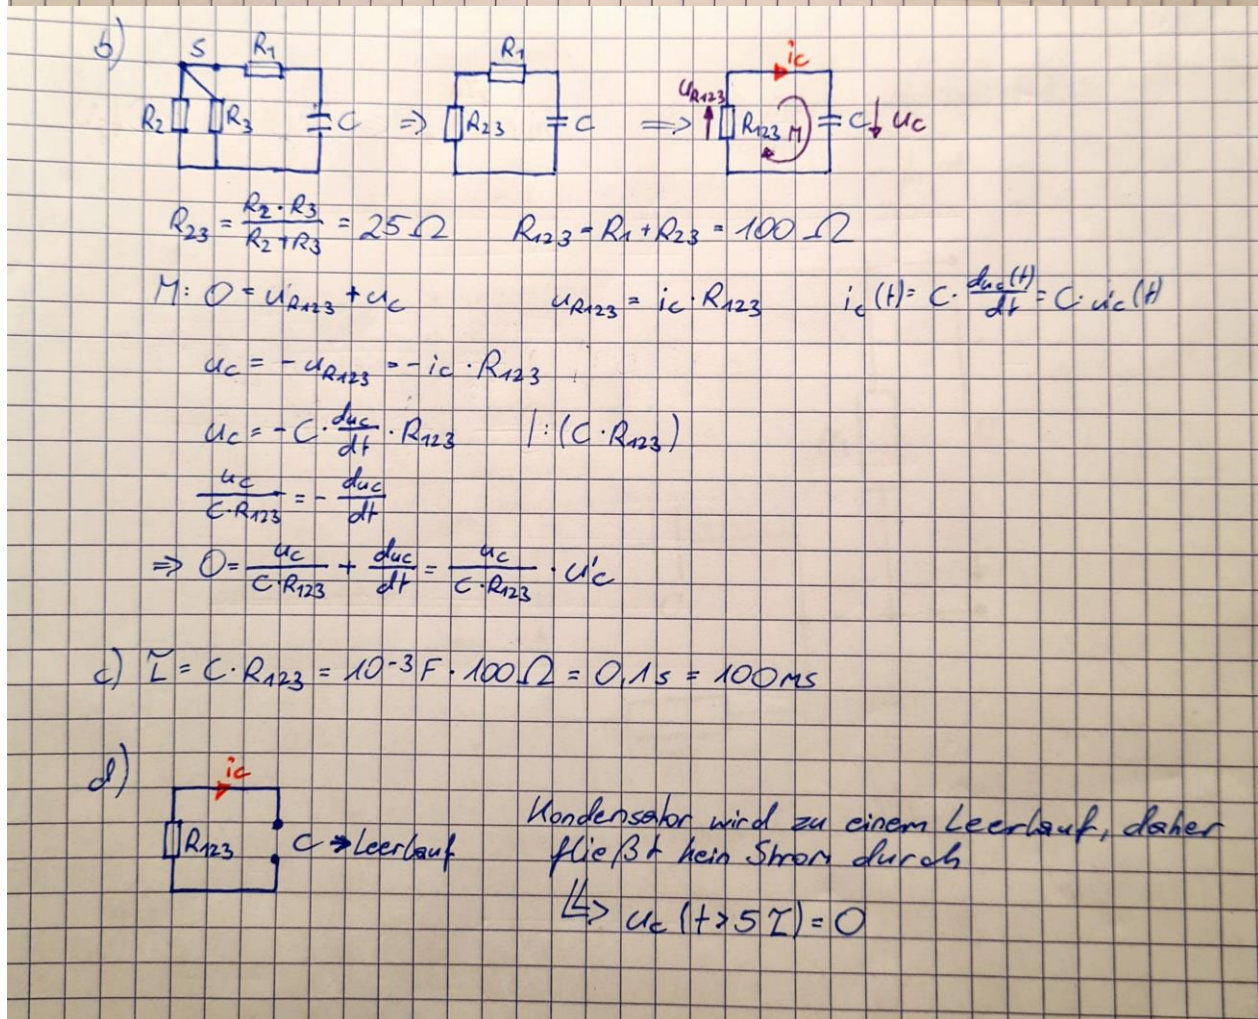 b)
S R₁
R₂ R₃ C ⇒ R₁ R₂₃ C ⇒ u_R₁₂₃ R₁₂₃ M i_c C u_c
R₂₃ = (R₂ · R₃)/(R₂ + R₃) = 25 Ω R₁₂₃ = R₁ + R₂₃ = 100 Ω
M: 0 = u_R₁₂₃ + u_c u_R₁₂₃ = i_c · R₁₂₃ i_c(t) = C · du_c(t)/dt = C · u̇_c(t)
u_c = - u_R₁₂₃ = - i_c · R₁₂₃
u_c = - C · du_c/dt · R₁₂₃ | : (C · R₁₂₃)
u_c/(C · R₁₂₃) = - du_c/dt
⇒ 0 = u_c/(C · R₁₂₃) + du_c/dt = u_c/(C · R₁₂₃) · u'_c
c) τ = C · R₁₂₃ = 10⁻³ F · 100 Ω = 0,1 s = 100 ms
d)
i_c
R₁₂₃ C → Leerlauf
Kondensator wird zu einem Leerlauf, daher
fließt kein Strom durch
↳> u_c (t > 5 τ) = 0